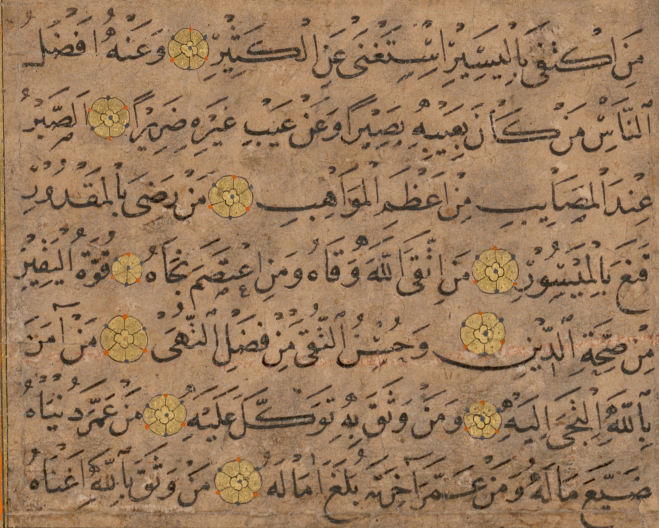 مَن اكتفى باليسير استغنى عن الكثير وعنه افضل
الناس من كان بعيبه بصيرا وعن عيب غيره ضريرا الصبر
عند المصايب من اعظم المواهب من رضى بالمقدور
قنع بالميسور من اتقى الله وقاه ومن اعتصم نجاه قوة اليقين
من صحة الدين وحسن التقى من فضل النهى من آمن
بالله التجى اليه ومن وثق به توكل عليه من عمر دنياه
ضيع ماله ومن عمر آخرته بلغ آماله من وثق بالله اغناه